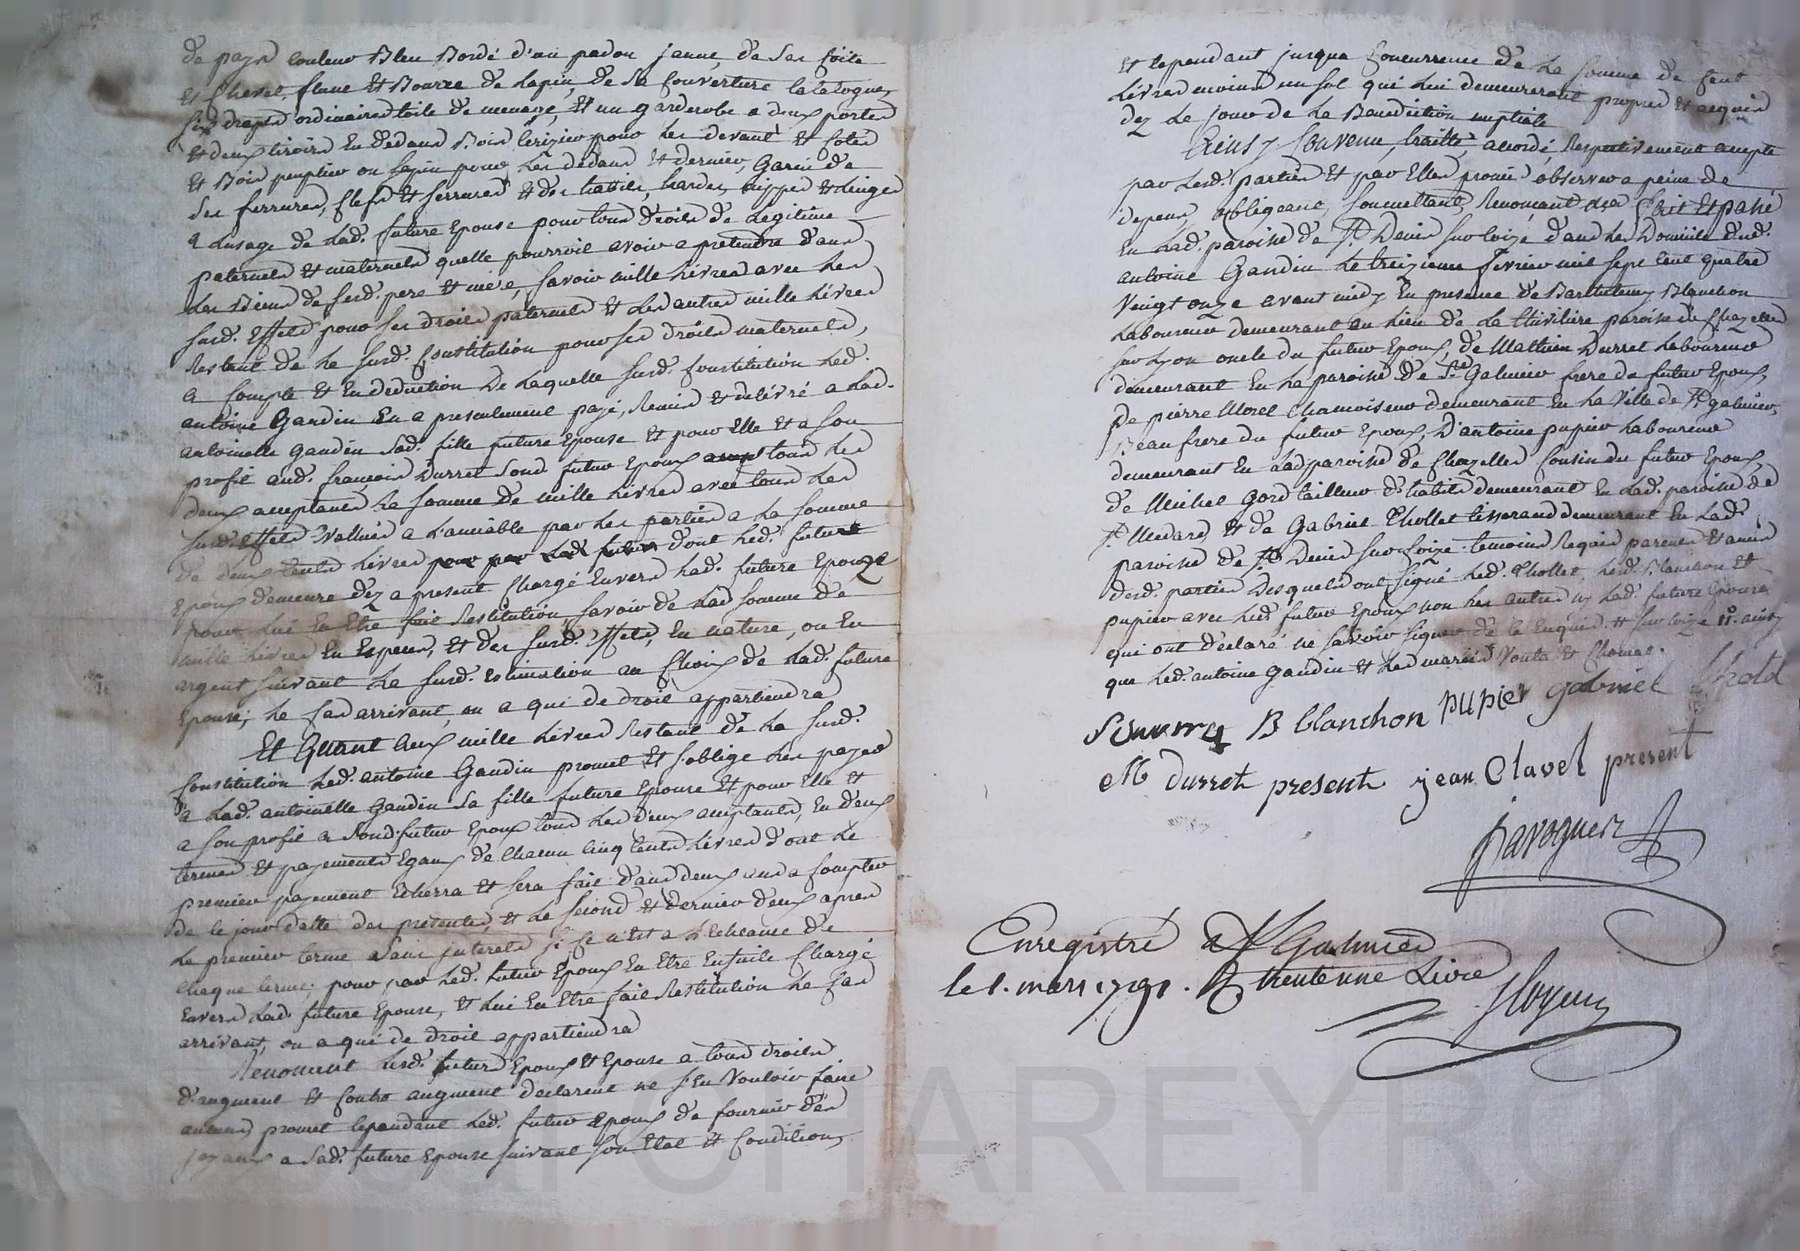 de pays couleur Bleu Bordé d'un padou jaune, de ses foite
et chevet, plume et Bourre de Lapin, de Sa Couverture Catalogne
six draps ordinaires toile de menage, et un garderobe a deux portes
et deux tiroirs en dedans Bois Cerizier pour les devant et cotés
et Bois peuplier ou sapin pour les dedans et dernier, Garni de
ses ferrures, clefs et serrures et des habits, hardes, nippes et Linges
a Lusage de Lad. future Epouse pour tous droits de Legitime
paternels et maternels quelle pourroit avoir a pretendre dans
les Biens de sesd. pere et mere, Savoir mille Livres avec les
susd. Effets pour ses droits paternels et Les autres mille Livres
Restant de La susd. Constitution pour ses droits maternels,
a Compte et en deduction de Laquelle susd. Constitution Led.
antoine Gandin en a presentement payé, Remis et delivré a Lad.
antoinette Gandin Sad. fille future Epouse et pour Elle et a son
profit aud. françois Durret Sond. futur Epoux tous les
deux acceptants La somme de mille Livres avec tous Les
susd. Effets Vallués a Lamiable par Les parties a La somme
de deux cents Livres dont Led. futur
Epoux demeure dez a present Chargé Envers Lad. future Epouze
pour Lui En Etre fait Restitution, savoir de Lad somme de
mille Livres En Especes, et des susd. Effets, En nature, ou En
argent suivant La susd. Estimation au Choix de Lad. future
Epouse; le Cas arrivant, ou a qui de droit appartiendra
Et Quant aux mille Livres Restant de La susd.
Constitution Led. antoine Gandin promet et s'oblige Les payer
a Lad. antoinette Gandin Sa fille future Epouse et pour Elle et
a son profit a Sond. futur Epoux tous Les deux acceptants, En deux
termes et payements Egaux de Chacun Cinq Cents Livres dont Le
premier payement Echerra et sera fait dans deux ans a Compter
de Ce jour datte des presentes, et Le second et dernier deux apres
Le premier terme Sans interets si ce n'est a L'echeance de
Chaque terme; pour par Led. futur Epoux En Etre Ensuite Chargé
Envers Lad. future Epouse, et Lui En Etre fait Restitution Le Cas
arrivant, ou a qui de droit appartiendra
Renoncent Lesd. futurs Epoux et Epouse a tous droits
d'augment et Contre augment declarent ne s'en Vouloir faire
aucuns promet Cependant Led. futur Epoux de fournir des
joyaux a Sad. future Epouse suivant son Etat et Condition,
et Cependant jusqua Concurrence de La somme de Cent
Livres moins un sol qui Lui demeureront propres et acquis
dez Le jour de La Benediction nuptiale
Ainsy Convenu, traitté, accordé, Respectivement accepté
par Lesd. parties et par Elles promis observer a peine de
depens, obligeant, soumettant, Renonçant Fait et passé
En Lad. paroisse de St. Denis sur Coize dans Les Domicile dud.
antoine Gandin Le treizieme fevrier mil sept cent quatre
Vingt onze avant midy En presence de Barthelemy Blanchon
Laboureur demeurant au Lieu de La paroisse de Chazelles
sur Lyon oncle du futur Epoux, de Mathieu Durret Laboureur
demeurant En La paroisse de St. Galmier frere du futur Epoux,
de pierre Morel Chamoiseur demeurant En La Ville de St. galmier,
Beau frere du futur Epoux, D'antoine pupier Laboureur
demeurant En Lad paroisse de Chazelles Cousin du futur Epoux,
de Michel Gord tailleur d'habits demeurant En Lad. paroisse de
St. Medard, et de Gabriel Thollet tisserand demeurant En Lad.
paroisse de St. Denis sur Coize temoins Requis parents et amis
desd. parties Desquels ont signé Led. Thollet, Led. Blanchon et
pupier avec Led. futur Epoux non Les autres ny Lad. future Epouse
qui ont declaré ne savoir signer de ce Enquis et sur Coize ainsy
que Led. antoine Gandin et Les mariés
B blanchon pupier gabriel tholld
M durret present jean Clavel present
Enregistré a St Galmier
le 1. mars 1791. R trente une Livre
CHAREYRON